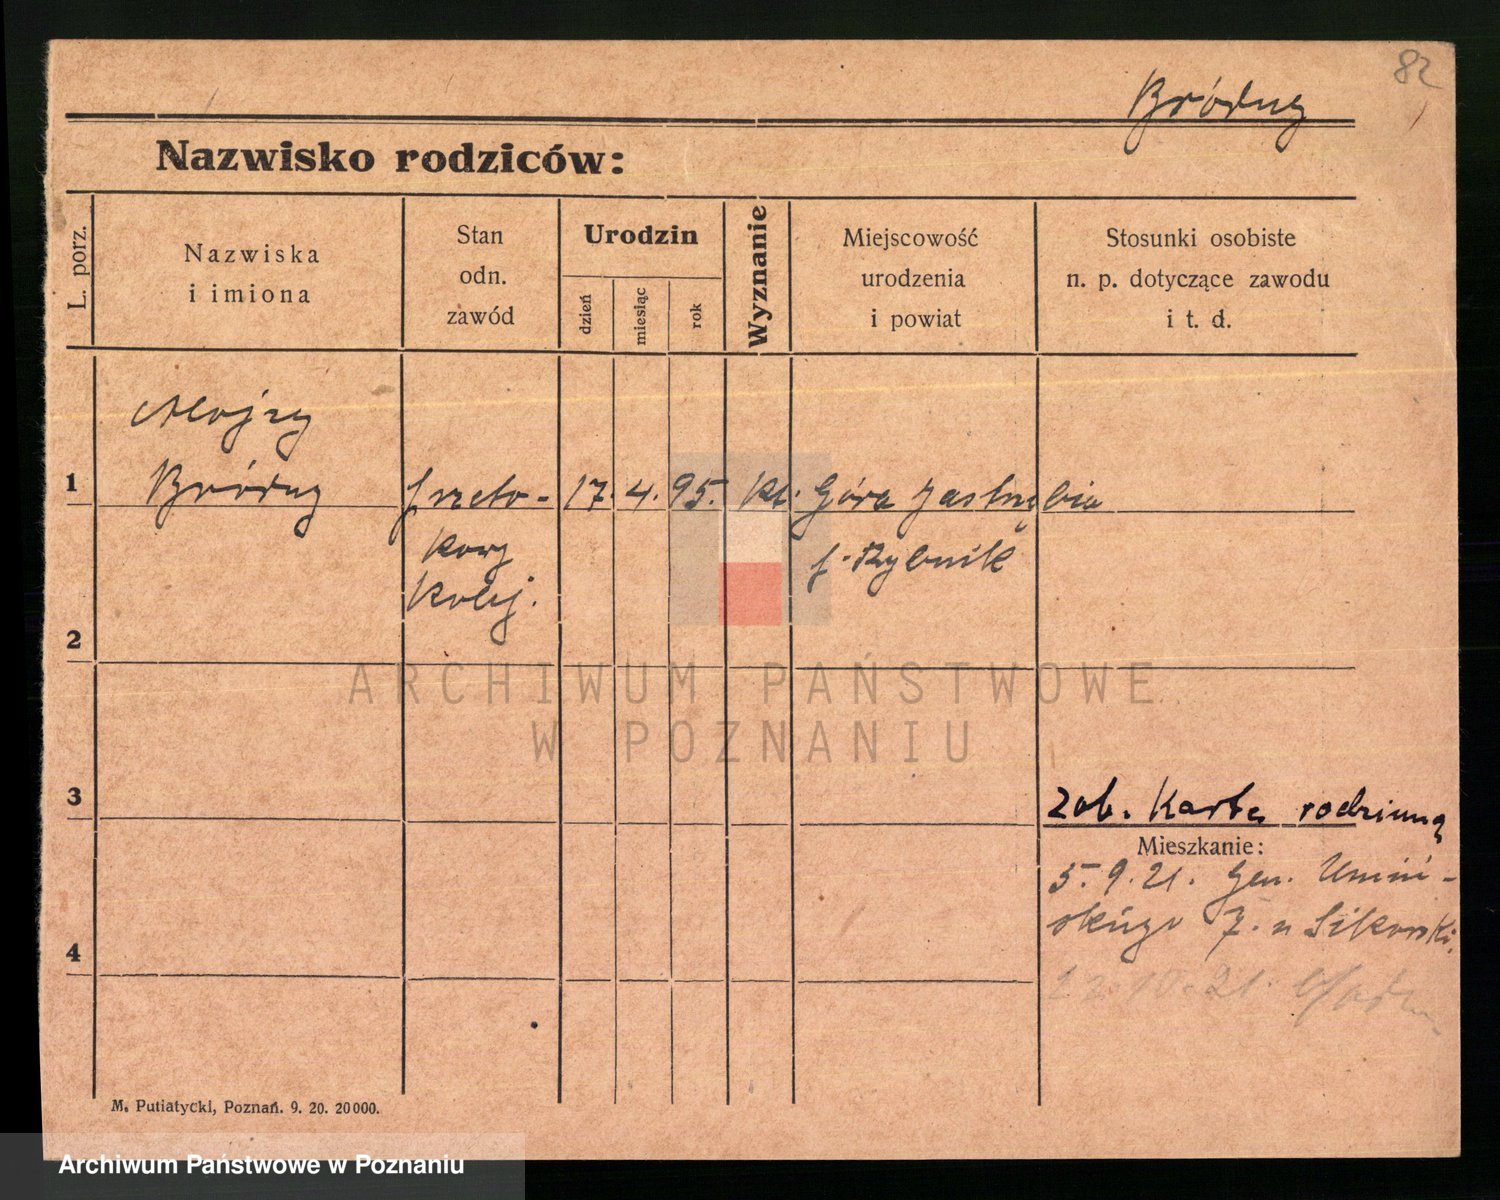 82
Bródny
Nazwisko rodziców:
L. porz.
Nazwiska
i imiona
Stan
odn.
zawód
Urodzin
dzień
miesiąc
rok
Wyznanie
Miejscowość
urodzenia
i powiat
Stosunki osobiste
n. p. dotyczące zawodu
i t. d.
Alojzy
1 Bródny 17. 4. 95. kt. Góra Jastrzębia
kowy p. Rybnik
kolej.
2
3 zob. Karta rodzinną
Mieszkanie:
5. 9. 21. Gen. Umiń-
skiego 7. u Sikorski.
4
22. 10. 21.
M. Putiatycki, Poznań. 9. 20. 20000.
ARCHIWUM PAŃSTWOWE
W POZNANIU
Archiwum Państwowe w Poznaniu